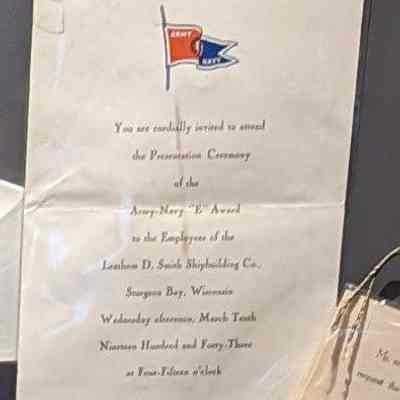 ARMY
NAVY
You are cordially invited to attend
the Presentation Ceremony
of the
Army-Navy "E" Award
to the Employees of the
Leathem D. Smith Shipbuilding Co.,
Sturgeon Bay, Wisconsin
Wednesday afternoon, March Tenth
Nineteen Hundred and Forty-Three
at Four-Fifteen o'clock
request the